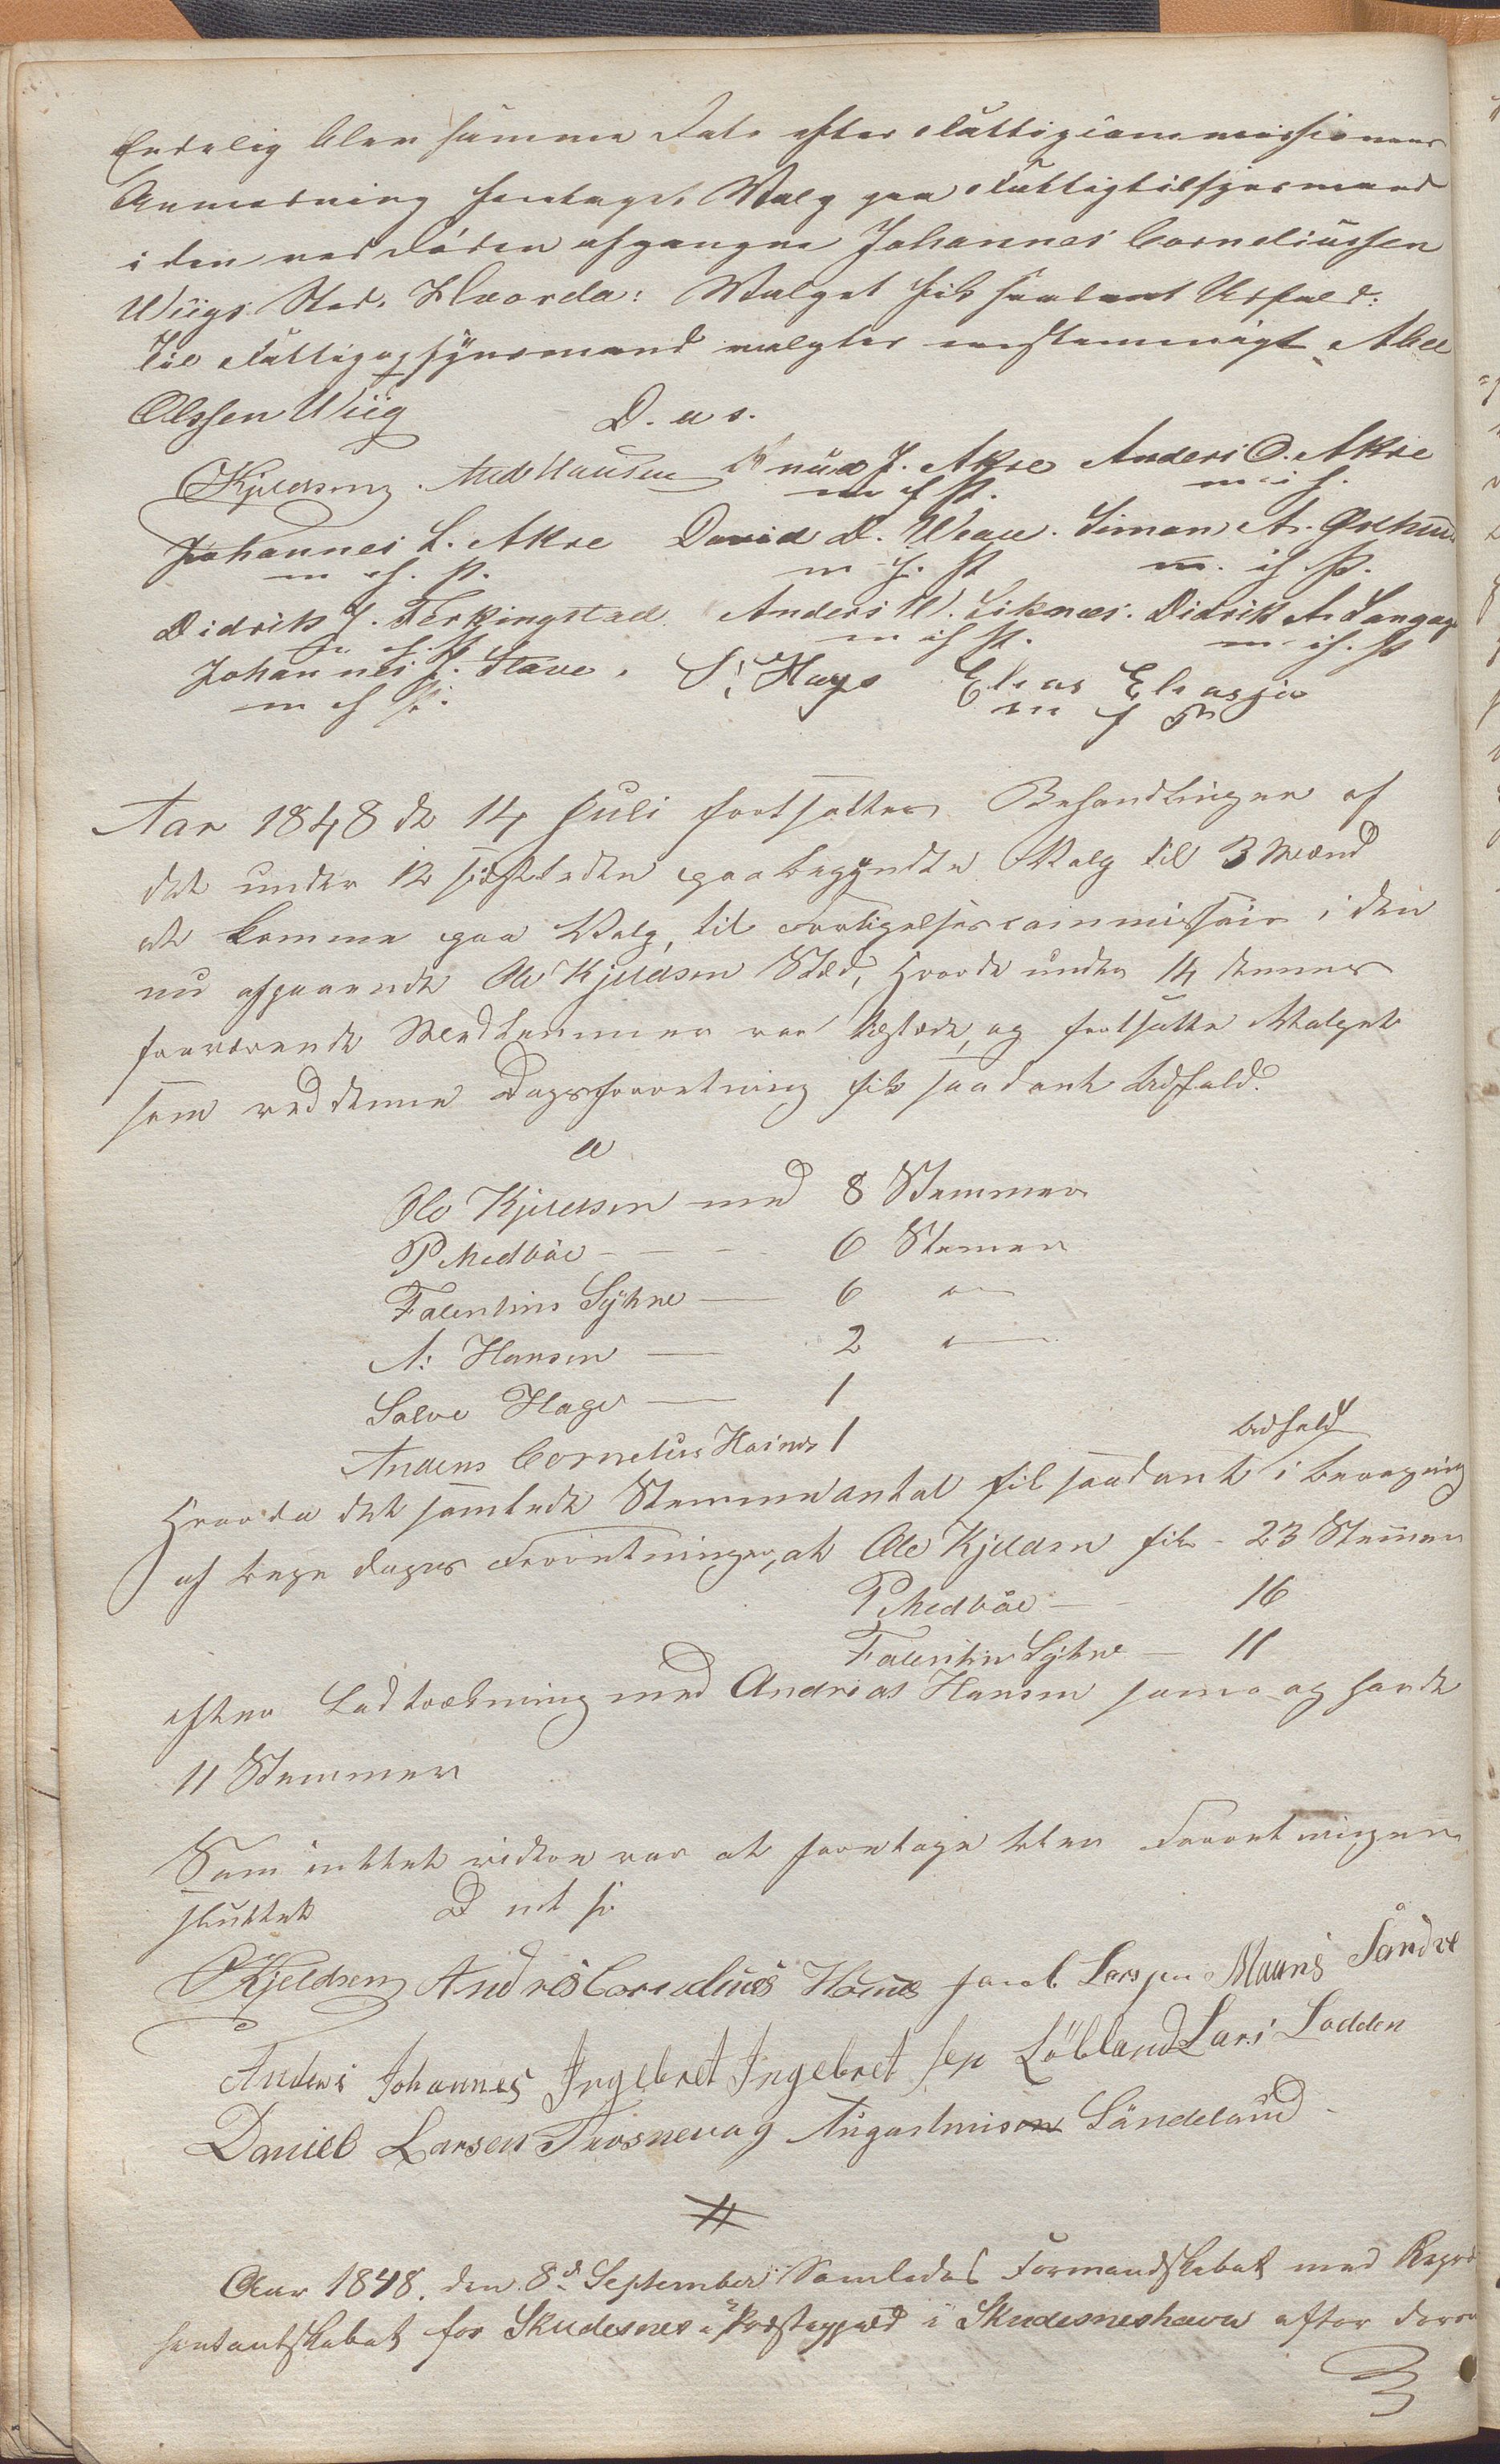 Endelig blev samme Dato efter Fattigcommissionens
Anmodning foretaget Valg paa Fattigtilsynsmand
i den ved Døden afgangne Johannes Corneliussen
Wiigs Sted. Hvorda: Valget fik saadant Udfald:
Til Fattigopsynsmand valgtes eenstemmigt Abel
Olssen Wiig D. u. s.
OKjeldsen And Hansen Knud J. Akre Anders O. Akre
m i h.
Johannes L. Akre David D. Simon A.
m. i h. P.
Didrik J. Ferkingstad Anders W. Liknæs. Didrik A. Langaa
m ih P. m. ih. P
Johannes J. Stave. S: Hage Elias Eliasen
Aar 1848 de 14 Juli fortsattes Behandlingen af
det under 12 sidstleden paabegyndte Valg til 3 Mænd
at komme paa Valg, til Forligelsescommissair i den
nu afgaaende Ole Kjeldsen Sted, hvorde under 14 dennes
fraværende Medlemmer var tilstede, og fortsatte Valget
som ved denne Dagsforretning fik saadant Udfald.
Ole Kjeldsen med 8 Stemmer
P Medbøe - - - 6 Stemer
Falentins Syhre — 6 —
A: Hansen — 2 —
Salve Hage — 1
Anders Cornelius Hoines 1
Udfald
Hvorda det samlede Stemmeantal fik saadant i beregning
af begge dages Forretninger, at Ole Kjeldsen fik - 23 Stemer
P Medbøe — - 16
Falentin Syhre — 11
efter Lodtrækning med Andreas Hansen som og havde
11 Stemmer
Som intet videre var at foretage blev Forretningen
sluttet D ut s
OKjeldsen Andres Cornelius Hoines Jacob Larssen Mauns Sandve
Anders Johannes Ingebret Ingebretsen Löbland Lars Lodden
Daniel Larsen Trosnevag Augustinison Sandeland
#
Aar 1848. den 8d September Samledes Formandskabet med Repræ
sentantskabet for Skudesnes Præstegjæld i Skudesneshavn efter deres